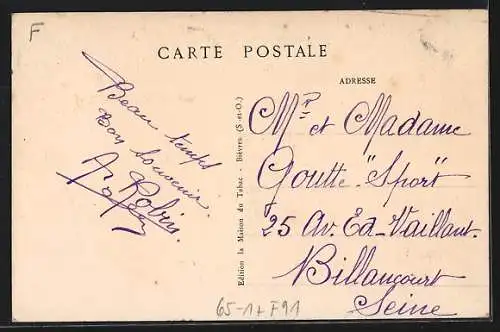 F
CARTE POSTALE
ADRESSE
Beau temps
Bon Souvenir.
Robin.
Mr et Madame
Goutte "Sport"
25 Av. Ed-Vaillant.
Billancourt
Seine
Edition la Maison du Tabac - Bièvres (S.-et-O.)
65-1 + F91